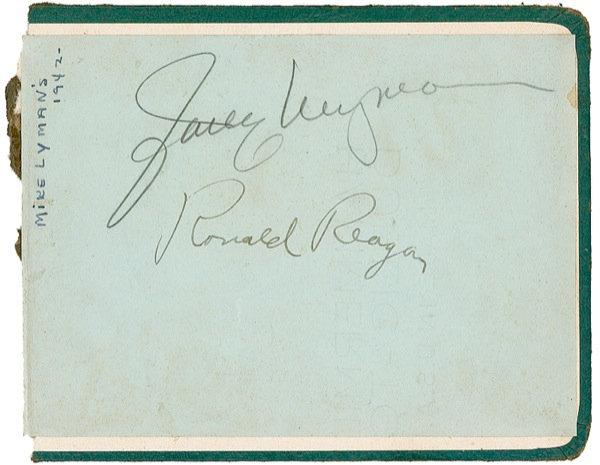 MIKE LYMAN'S
1942-
Jane Wyman
Ronald Reagan